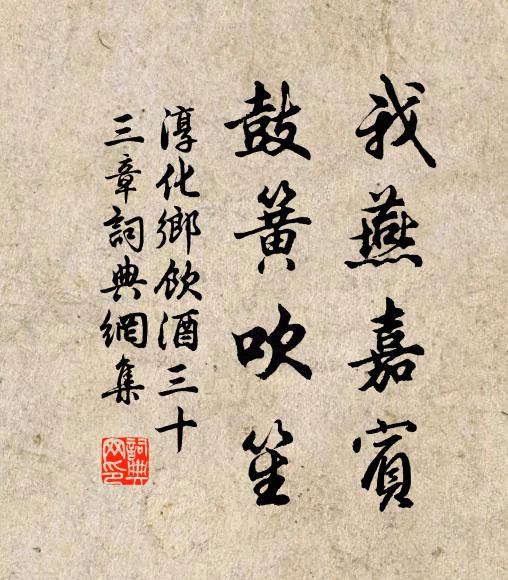 我燕嘉賓
鼓簧吹笙
淳化鄉飲酒三十
三章詞典網集
詞典網印